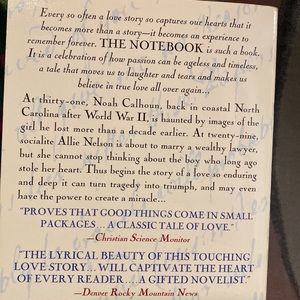 Every so often a love story so captures our hearts that it
becomes more than a story—it becomes an experience to
remember forever. THE NOTEBOOK is such a book.
It is a celebration of how passion can be ageless and timeless,
a tale that moves us to laughter and tears and makes us
believe in true love all over again...
At thirty-one, Noah Calhoun, back in coastal North
Carolina after World War II, is haunted by images of the
girl he lost more than a decade earlier. At twenty-nine,
socialite Allie Nelson is about to marry a wealthy lawyer,
but she cannot stop thinking about the boy who long ago
stole her heart. Thus begins the story of a love so enduring
and deep it can turn tragedy into triumph, and may even
have the power to create a miracle...
"PROVES THAT GOOD THINGS COME IN SMALL
PACKAGES...A CLASSIC TALE OF LOVE."
—Christian Science Monitor
"THE LYRICAL BEAUTY OF THIS TOUCHING
LOVE STORY...WILL CAPTIVATE THE HEART
OF EVERY READER...A GIFTED NOVELIST."
—Denver Rocky Mountain News